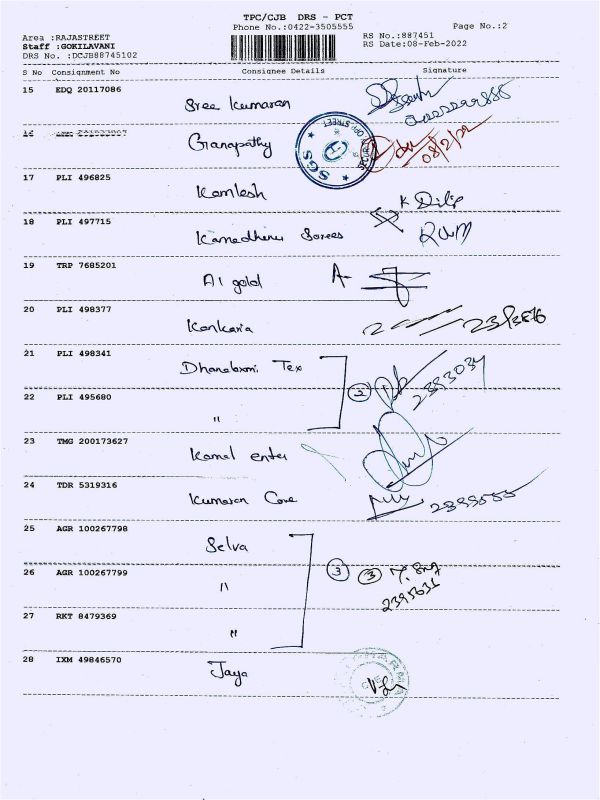 TPC/CJB DRS - PCT
Phone No.:0422-3505555
Page No.:2
Area :RAJASTREET
RS No.:887451
Staff :GOKILAVANI
RS Date:08-Feb-2022
DRS No. :DCJB88745102
S No Consignment No Consignee Details Signature
15 EDQ 20117086
Sree Kumaran
16
Ganapathy
SGS
08/2/22
17 PLI 496825
Kamlesh
K Dilip
18 PLI 497715
Kamadhenu Sarees
19 TRP 7685201
A1 gold
20 PLI 498377
Kankaria
21 PLI 498341
Dhanalaxmi Tex
2
2393034
22 PLI 495680
"
23 TMG 200173627
Kamal enter
24 TDR 5319316
Kumaran Cove
25 AGR 100267798
Selva
3 3
26 AGR 100267799
"
2395631
27 RKT 8479369
"
28 IXM 49846570
Jaya